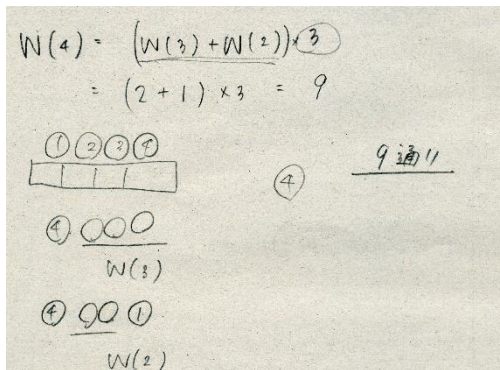 W(4) = (W(3) + W(2)) × 3
= (2 + 1) × 3 = 9
① ② ③ ④
④ 9通り
④ ○○○
W(3)
④ ○○ ①
W(2)